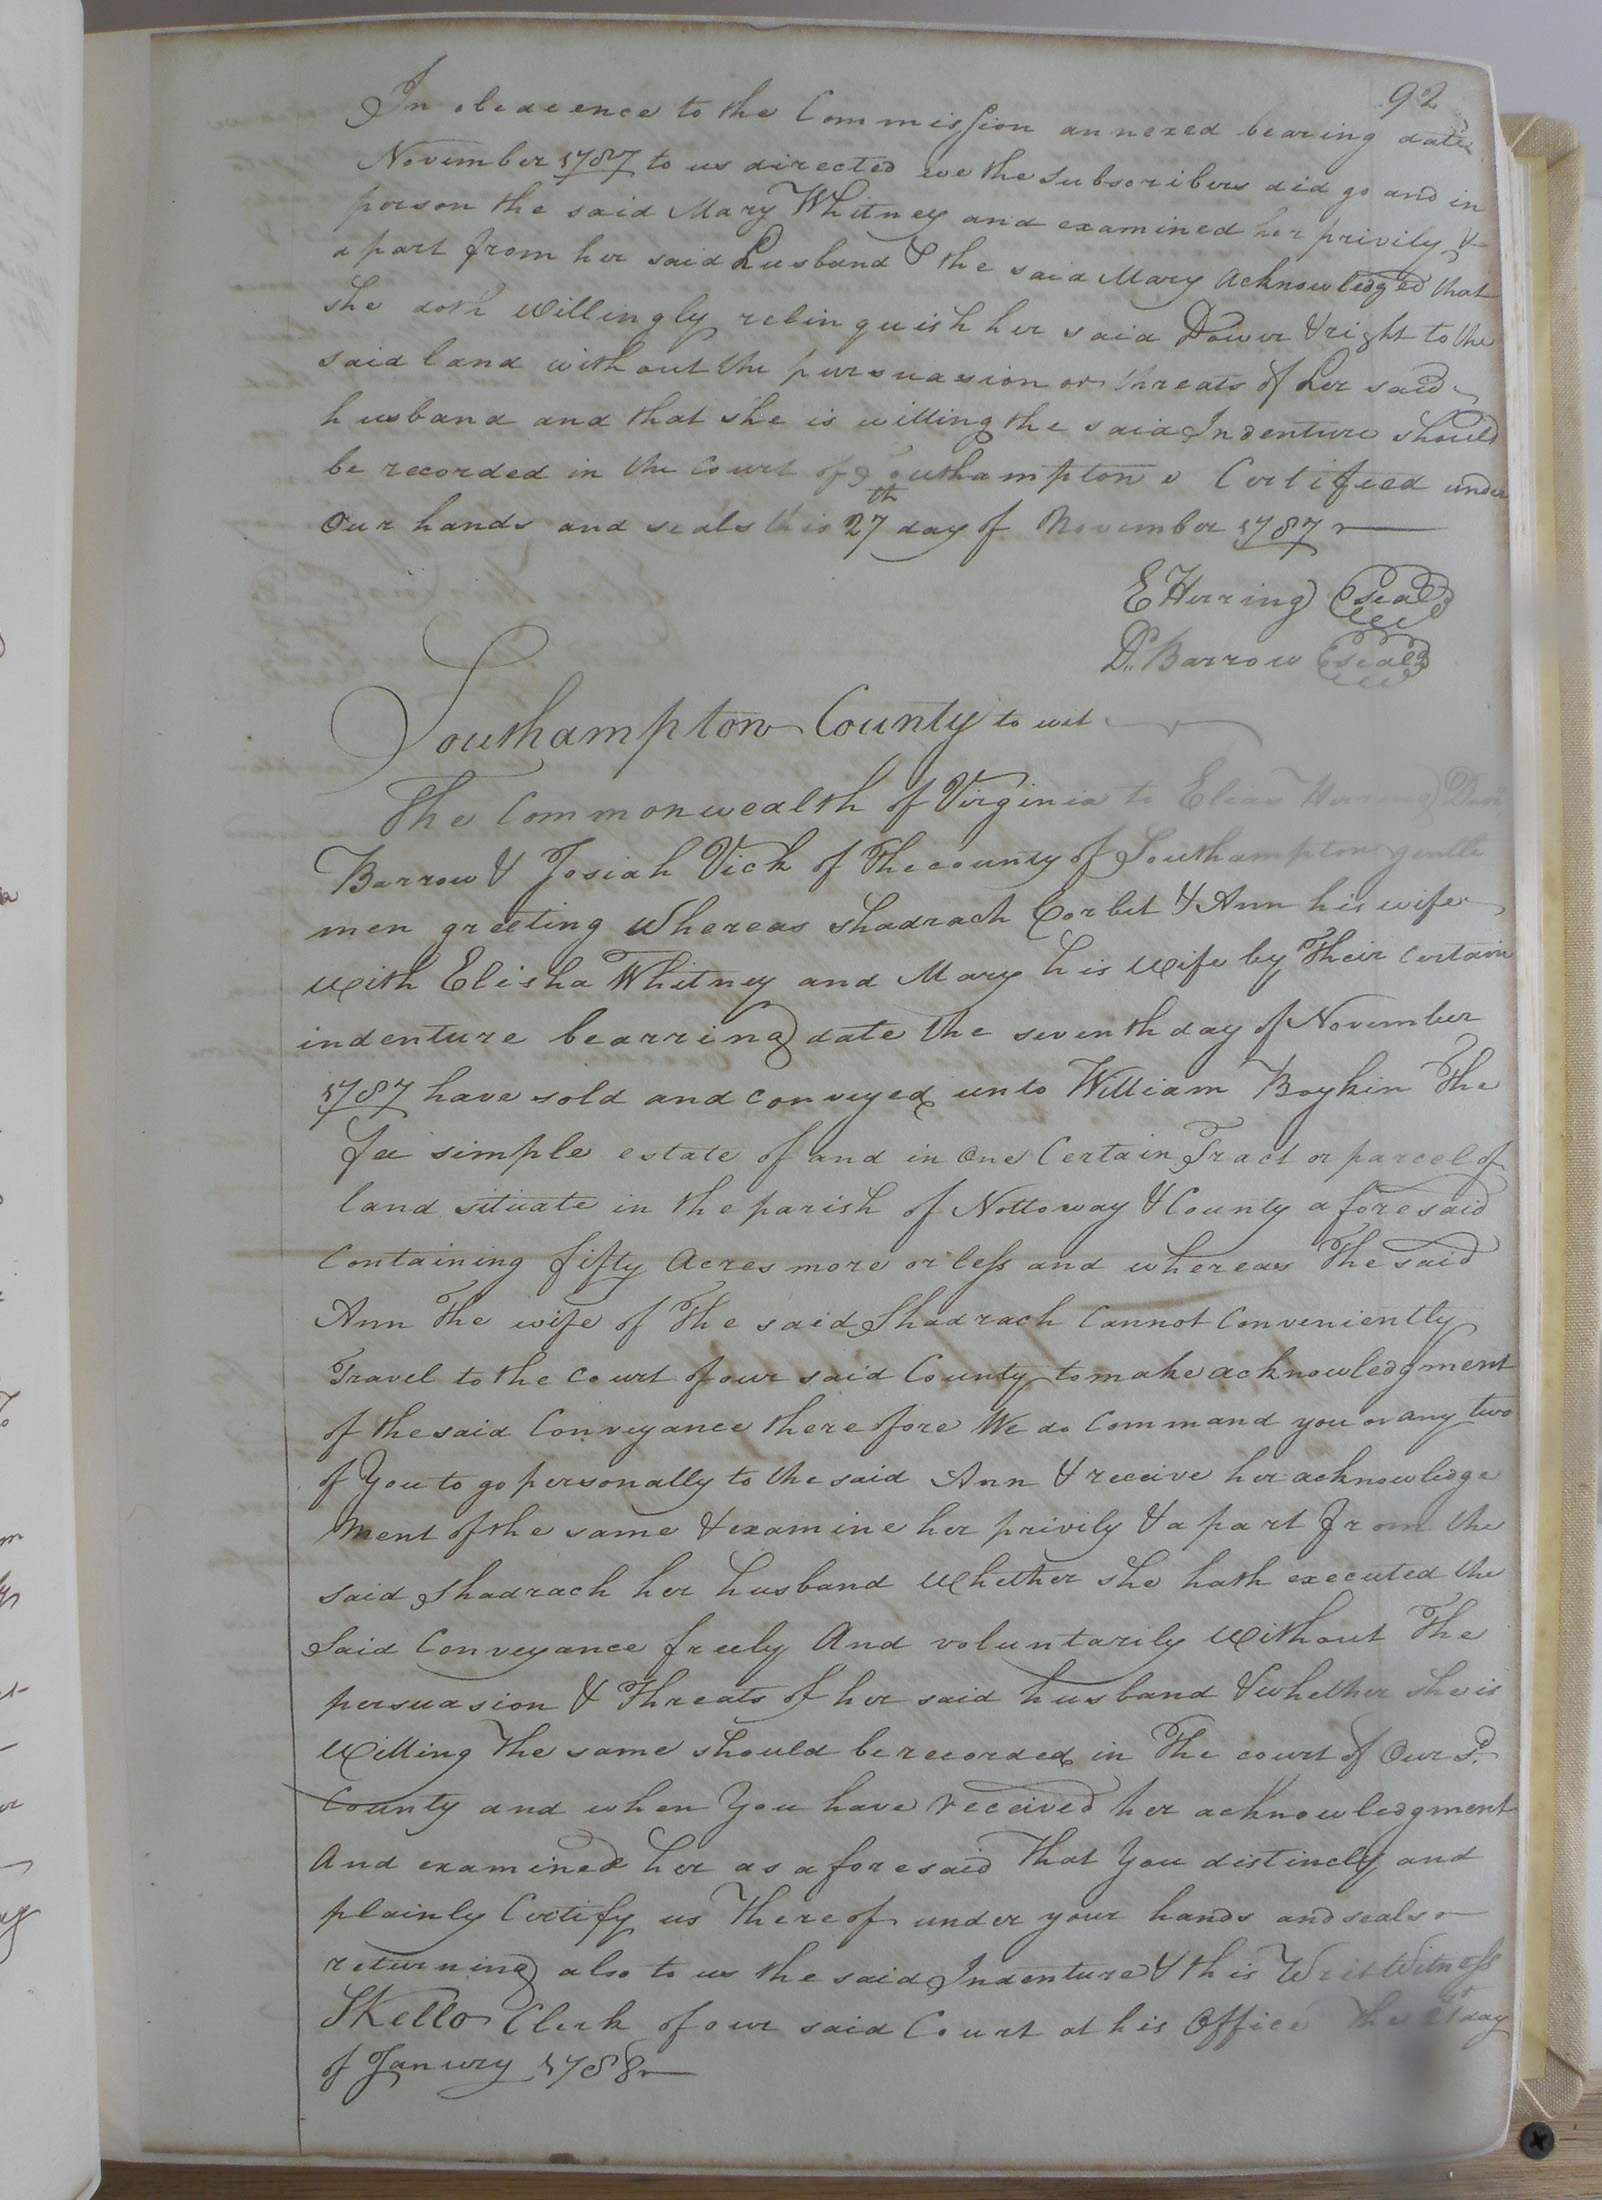 92
In obedience to the Commission annexed bearing date
November 1787 to us directed we the subscribers did go and in
person the said Mary Whitney and examined her privily &
apart from her said husband & the said Mary Acknowledged that
she doth willingly relinquish her said Dower & right to the
said land without the pursuasion or threats of her said
husband and that she is willing the said Indenture should
be recorded in the Court of Southampton Certified under
Our hands and seals this 27th day of November 1787
E Herring seal
D. Barrow seal
Southampton County to wit
The Commonwealth of Virginia to Elias
Barrow & Josiah Vick of The county of Southampton gentle
men greeting Whereas Shadrach Corbit & Ann his wife
with Elisha Whitney and Mary his wife by Their certain
indenture bearring date the seventh day of November
1787 have sold and conveyed unto William Boykin The
fee simple estate of and in One Certain Tract or parcel of
land situate in the parish of Nottoway & County aforesaid
Containing fifty Acres more or less and whereas The said
Ann The wife of The said Shadrach Cannot Conveniently
Travel to the Court of our said County to make acknowledgment
of the said Conveyance therefore We do Command you or any two
of You to go personally to the said Ann & receive her acknowledge
ment of the same & examine her privily & apart from the
said Shadrach her husband Whether she hath executed the
Said Conveyance freely And voluntarily Without The
persuasion & Threats of her said husband & whether she is
Willing The same should be recorded in The court of Our sd.
County and when You have received her acknowledgment
And examined her as aforesaid That You distincly and
plainly Certify us Thereof under your hands and seals
returning also to us the said Indenture & this Writ Witness
S Kello Clerk of our said Court at his Office the day
of Janury 1788